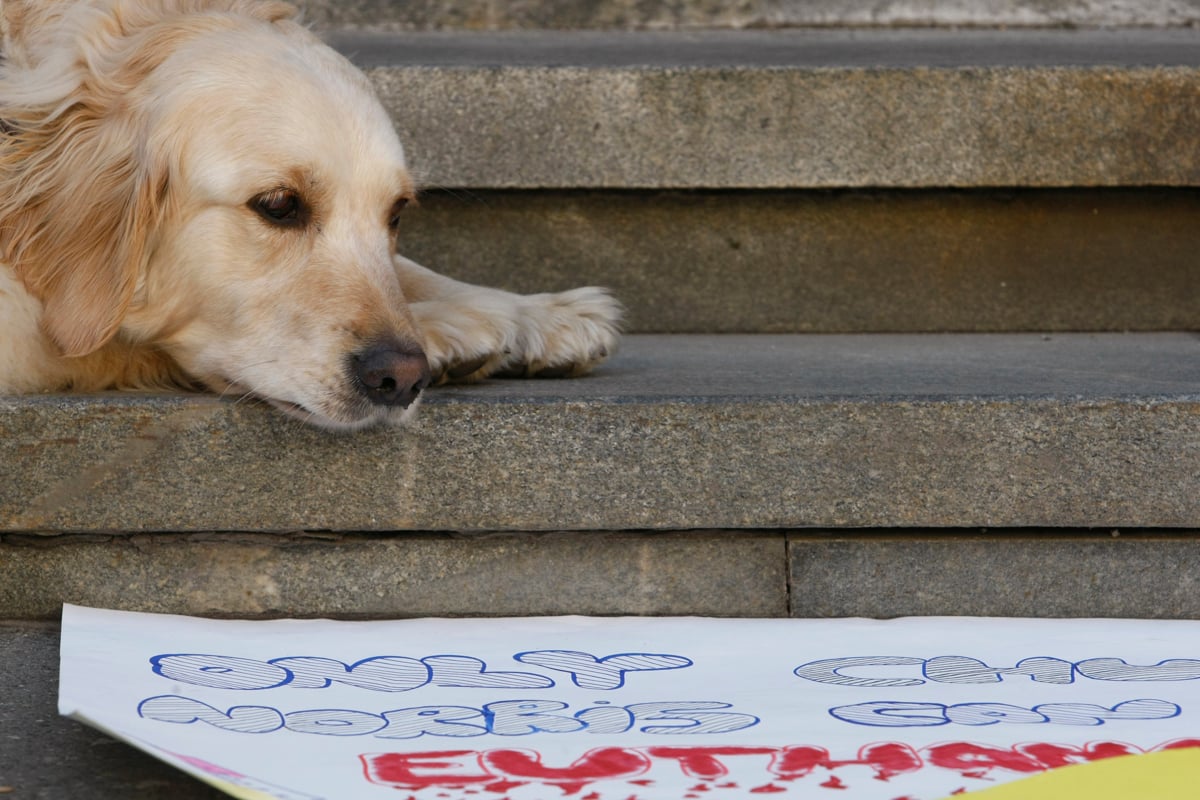 ONLY CHU
NORRIS CAN
EUTHAN